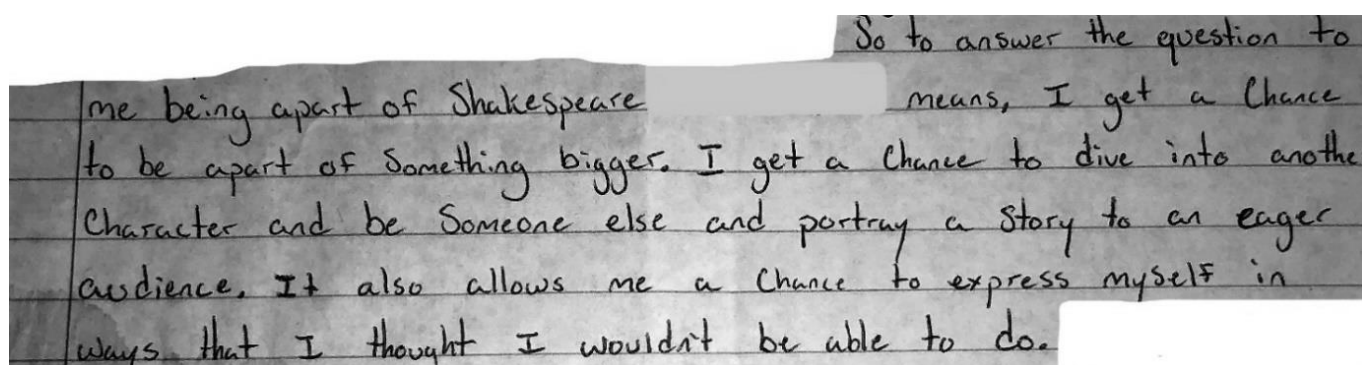 So to answer the question to
me being apart of Shakespeare means, I get a Chance
to be apart of Something bigger. I get a Chance to dive into anothe
Character and be Someone else and portray a Story to an eager
audience. It also allows me a Chance to express myself in
ways that I thought I wouldn't be able to do.